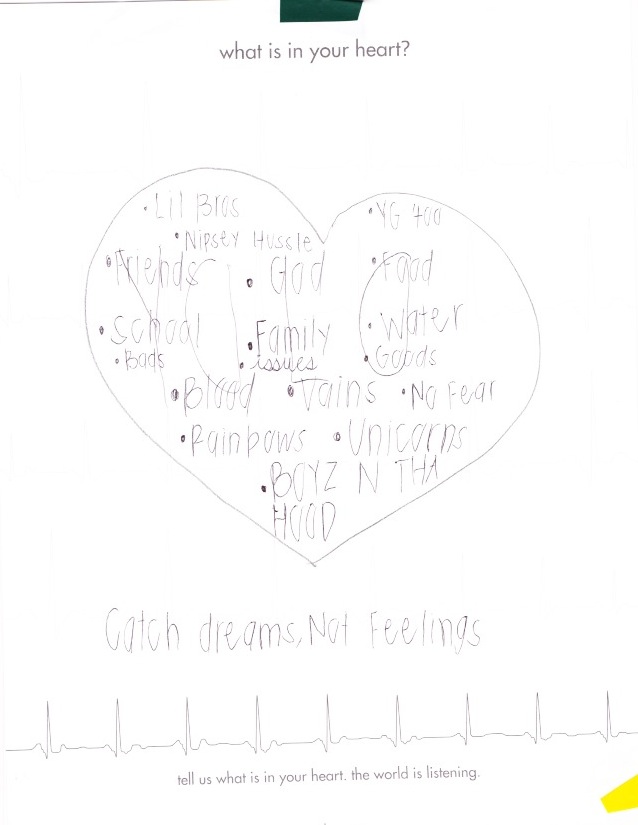 what is in your heart?
• Lil Bros
• YG 400
• Nipsey Hussle
• Friends • God • Food
• School • Family • Water
• Bads • issues • Goods
• Blood • Vains • No Fear
• Rainbows • Unicorns
• BOYZ N THA
HOOD
Catch dreams, Not Feelings
tell us what is in your heart. the world is listening.